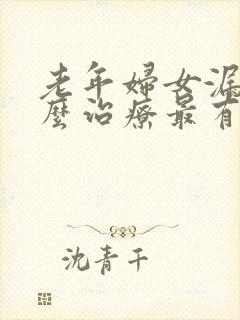 老年婦女漏
麼治療最有
沈青干